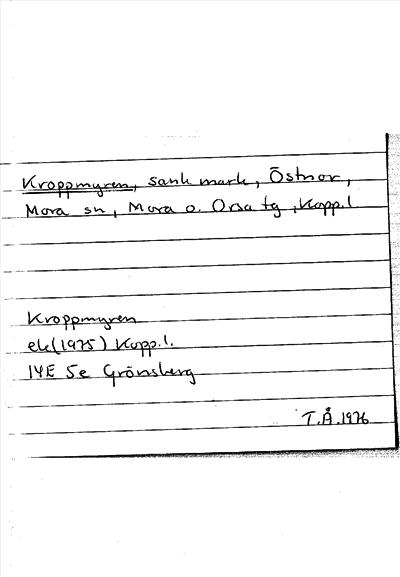 Kroppmyren, sank mark, Östnor,
Mora sn, Mora o. Orsa tg, Kopp.l.
Kroppmyren
ek(1975) Kopp.l.
14E 5e Grönsberg
T.Å.1976